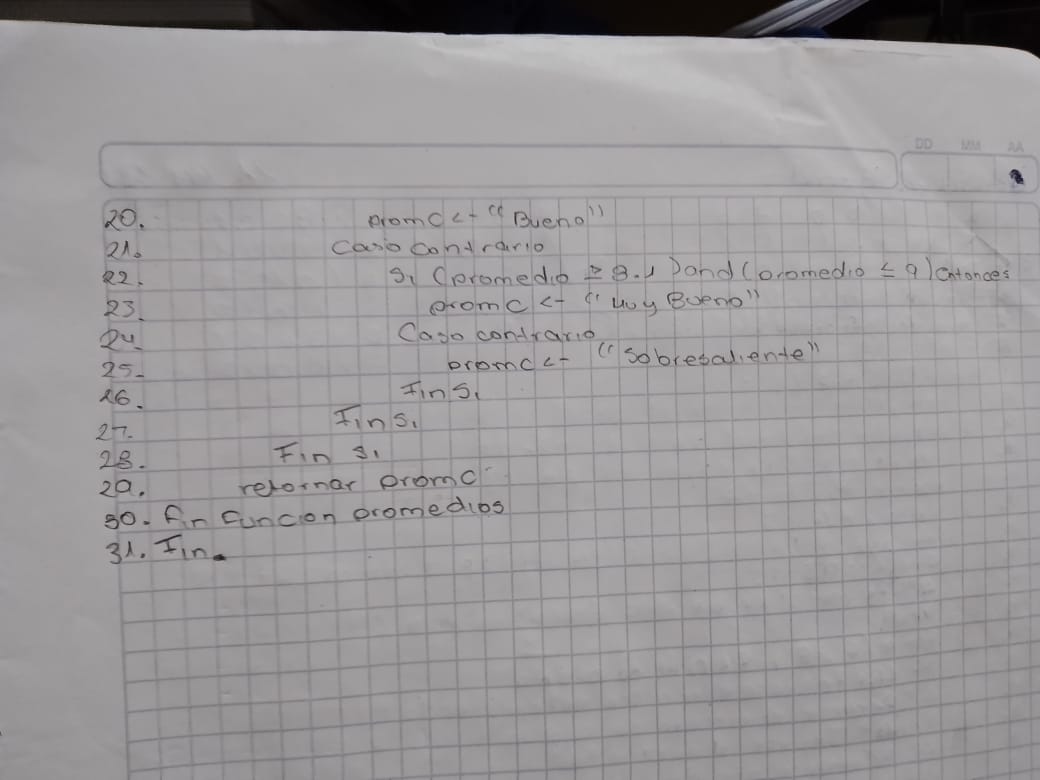 DD MM AA
20. promC <- "Bueno"
21. Caso Contrario
22. Si (promedio ≥ 8.1) and (promedio ≤ 9) Entonces
23. promC <- "Muy Bueno"
24. Caso contrario
25. promc <- "Sobresaliente"
26. Fin Si
27. Fin Si
28. Fin Si
29. retornar promC
30. fin Funcion promedios
31. Fin.